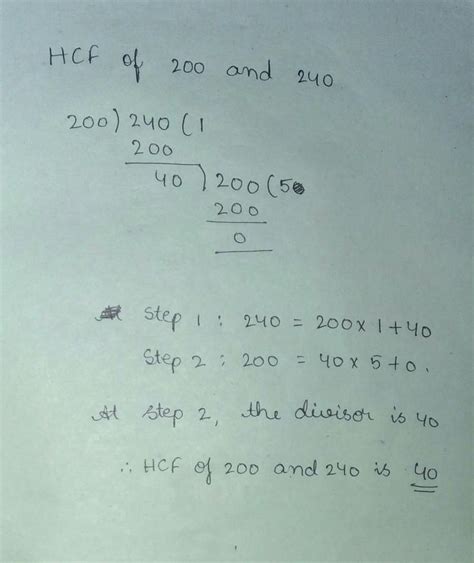 HCF of 200 and 240
200) 240 (1
200
40) 200 (5
200
0
Step 1 : 240 = 200 x 1 + 40
Step 2 : 200 = 40 x 5 + 0.
At Step 2, the divisor is 40
∴ HCF of 200 and 240 is 40